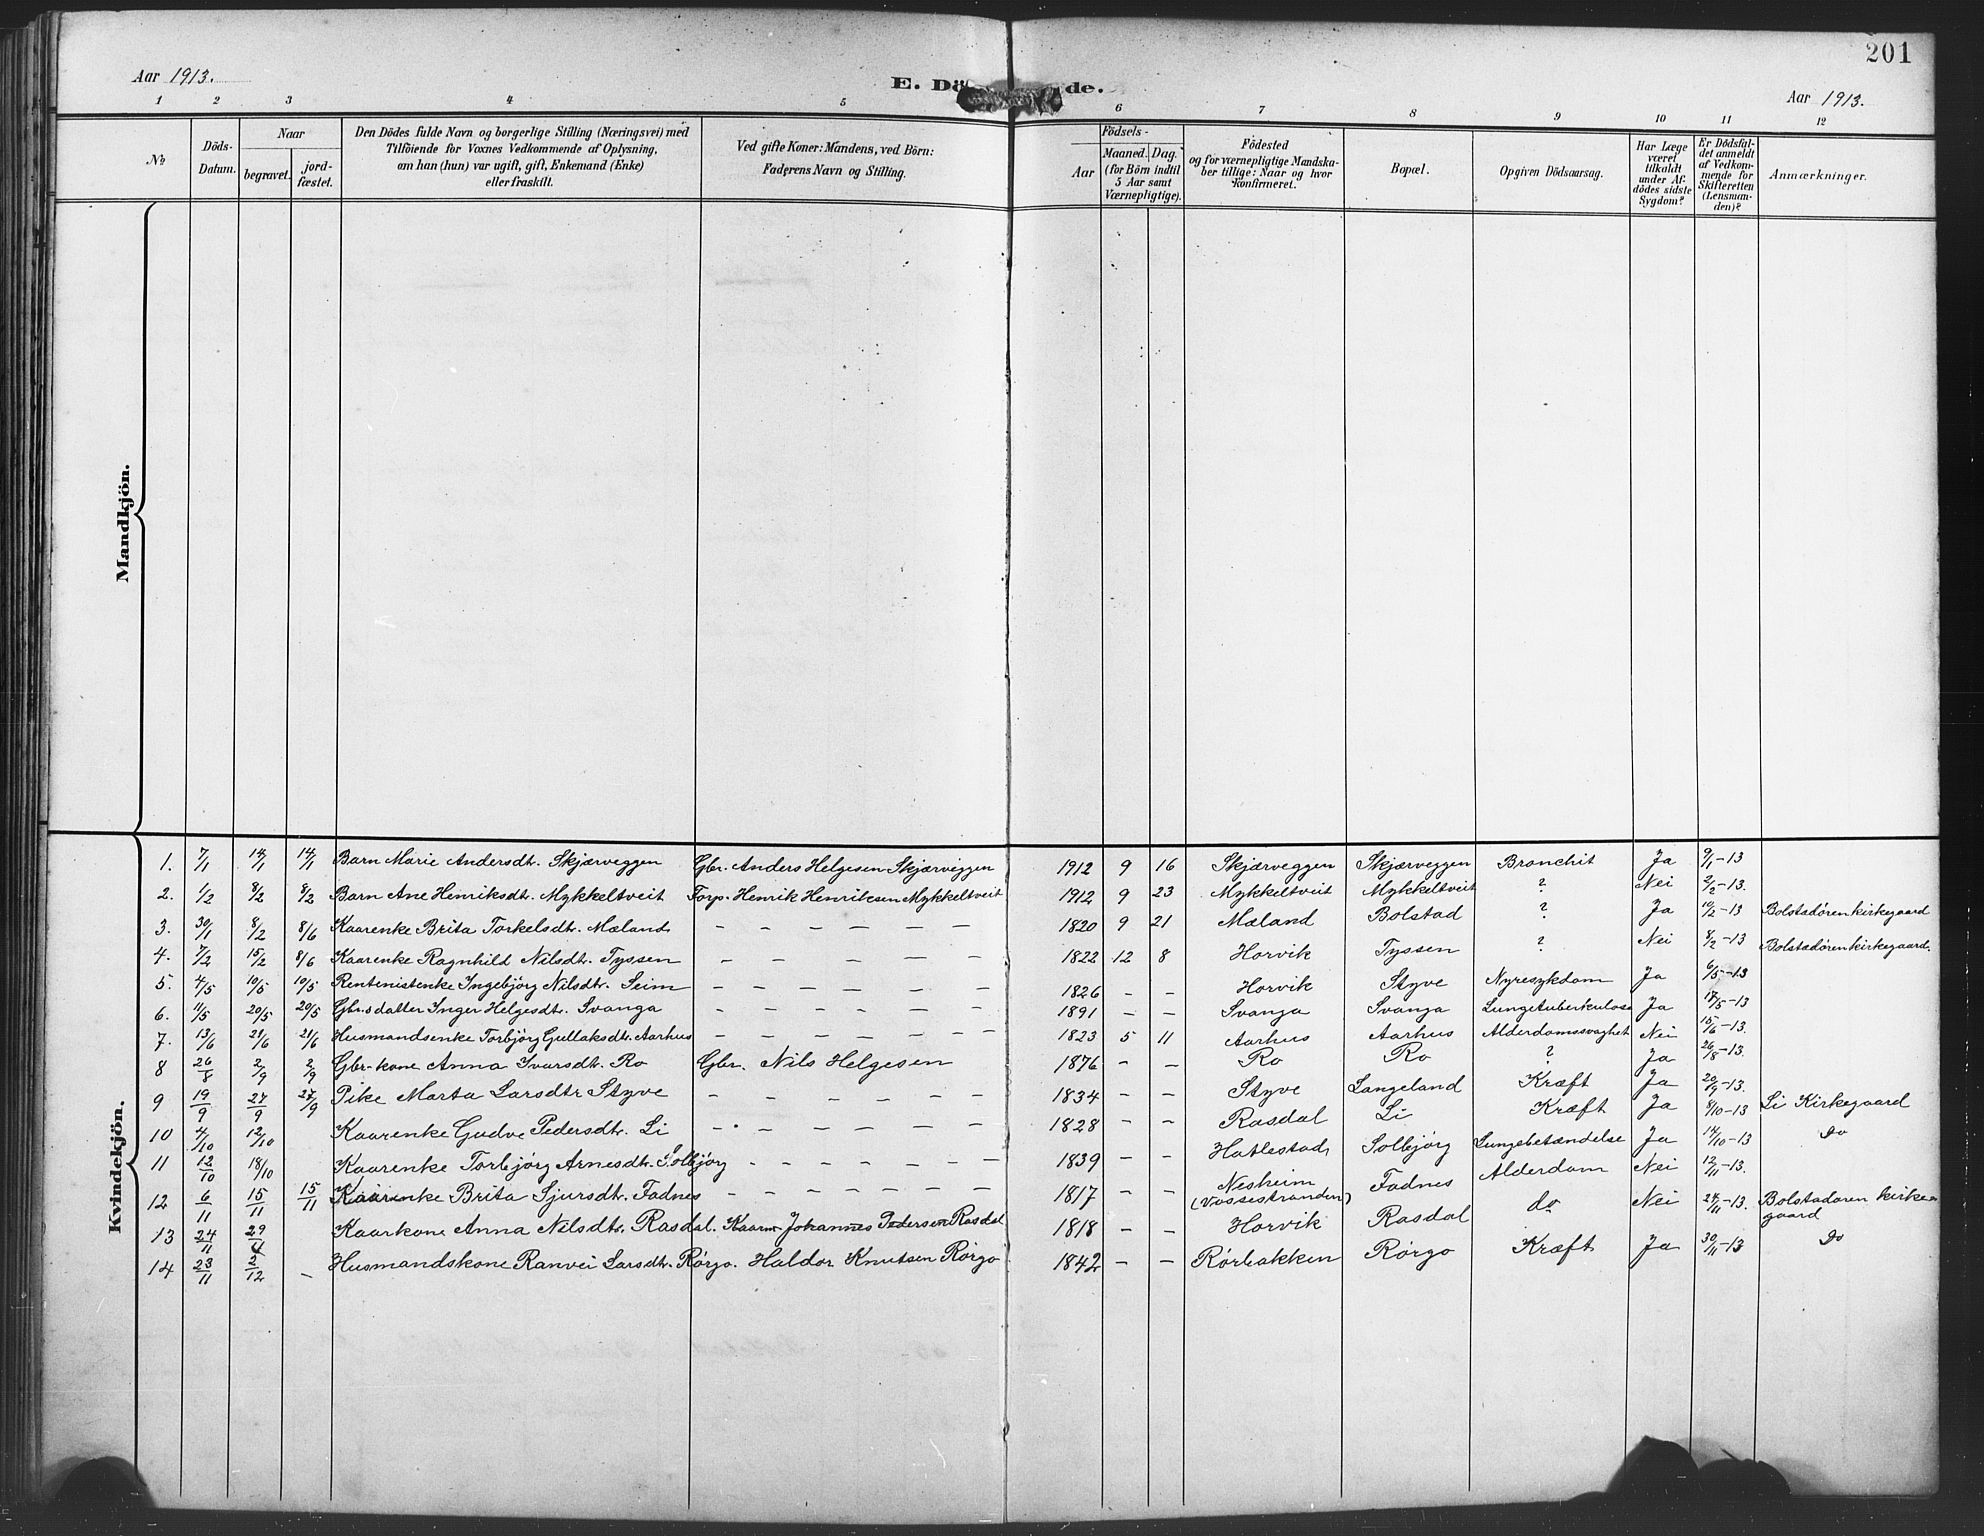 201
Aar 1913.
E. Dö de.
Aar 1913.
1 2 3 4 5 6 7 8 9 10 11 12
No
Döds-Datum.
Naar
begravet.
jord-fæstet.
Den Dödes fulde Navn og borgerlige Stilling (Næringsvei) med
Tilföiende for Voxnes Vedkommende af Oplysning,
om han (hun) var ugift, gift, Enkemand (Enke)
eller fraskilt.
Ved gifte Koner: Mandens, ved Börn:
Faderens Navn og Stilling.
Födsels-
Aar
Maaned. Dag.
(for Börn indtil
5 Aar samt
Værnepligtige).
Födested
og for værnepligtige Mandska-
ber tillige: Naar og hvor
konfirmeret.
Bopæl.
Opgiven Dödsaarsag.
Har Læge
været
tilkaldt
under Af-
dödes sidste
Sygdom?
Er Dödsfal-
det anmeldt
af Vedkom-
mende for
Skifteretten
(Lensman-
den)?
Anmærkninger.
Mandkjön.
Kvindekjön.
1. 7/1 14/1 14/1 Barn Marie Andersdt. Skjærveggen Gbr. Anders Helgesen Skjærveggen 1912 9 16 Skjærveggen Skjærveggen Bronchit Ja 9/1-13
2. 1/2 8/2 8/2 Barn Ane Henriksdt. Mykkeltveit Forp. Henrik Henriksen Mykkeltveit 1912 9 23 Mykkeltveit Mykkeltveit ? Nei 2/2-13.
3. 30/1 8/2 8/6 Kaarenke Brita Torkelsdt. Mæland - - - - - - 1820 9 21 Mæland Bolstad ? Ja 10/2-13 Bolstadørenkirkegaard
4. 7/2 15/2 8/6 Kaarenke Ragnhild Nilsdt. Tyssen - - - - - - 1822 12 8 Horvik Tyssen ? Nei 8/2-13 Bolstadørenkirkegaard.
5. 4/5 10/5 10/5 Rentenistenke Ingebjörg Nilsdt. Seim - - - - - - - 1826 - - Horvik Styve Nyresykdom Ja 6/5-13
6. 11/5 20/5 20/5 Gbr.sdatter Inger Helgesdt. Svanga - - - - - - - 1891 - - Svanga Svanga Lungetuberkulose Ja 17/5-13
7. 13/6 21/6 21/6 Husmandsenke Torbjörg Gullaksdt. Aarhus - - - - - - - 1823 5 11 Aarhus Aarhus Alderdomssvaghet Nei 15/6-13.
8 26/8 2/9 2/9 Gbr-kone Anna Ivarsdt. Ro Gbr. Nils Helgesen 1876 - - Ro Ro ? Ja 26/8-13.
9 19/9 27/9 27/9 Pike Marta Larsdtr Styve - - - - - - - 1834 - - Styve Langeland Kræft Ja 20/9-13.
10 4/10 12/10 Kaarenke Gudve Pedersdt. Li - - - - - - - 1828 - - Rasdal Li Kræft Ja 8/10-13 Li Kirkegaard
11 12/10 18/10 Kaarenke Torbjörg Arnesdt. Solbjörg - - - - - - - 1839 - - Hatlestad Solbjörg Lungebetændelse Ja 14/10-13 Do
12 6/11 15/11 15/11 Kaarenke Brita Sjursdt. Fadnes - - - - - - - 1817 - - Nesheim (Vossestranden) Fadnes Alderdom Nei 12/11-13.
13 24/11 29/11 Kaarkone Anna Nilsdt. Rasdal. Kaarm Johannes Pedersen Rasdal 1818 - - Horvik Rasdal do Nei 24/11-13. Bolstadøren kirke-
gaard
14 23/11 2/12 - Husmandskone Ranvei Larsdt. Rørgo. Haldor Knutsen Rørgo 1842 - - Rørbakken Rørgo Kræft Ja 30/11-13 Do